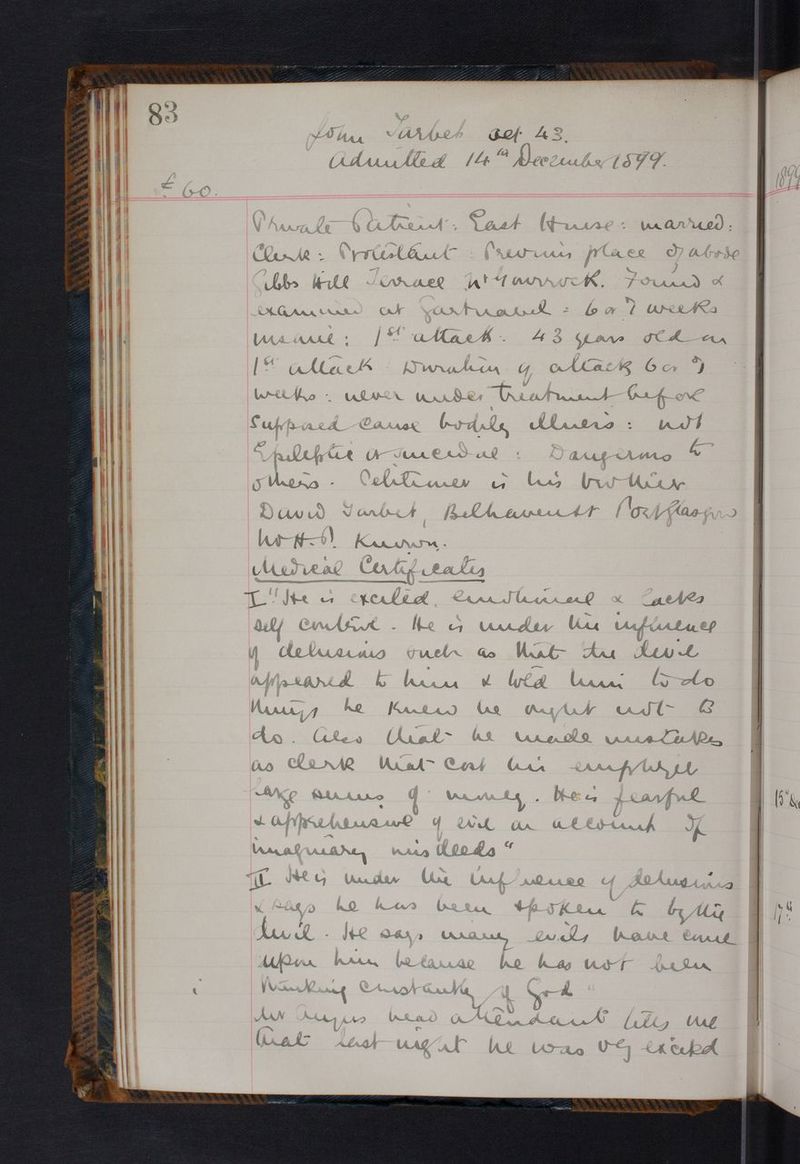 83
John Tarbet aet 43.
Admitted 14th December 1899.
£60.
1899
Private Patient: East House: married:
Clerk: Protestant: Previous place of abode
Gibbs Hill Terrace Nr Gourock. Found &
examined at Gartnavel = 6 or 7 weeks
insane: 1st attack. 43 years old on
1st attack Duration of attack 6 or 7
weeks: never under treatment before
Supposed cause bodily illness: not
Epileptic or suicidal: Dangerous to
others. Petitioner is his brother
David Tarbet, Belhaven St Port Glasgow
No H.P. Known.
Medical Certificates
I "He is excited, emotional & lacks
self control. He is under the influence
of delusions such as that the devil
appeared to him & told him to do
things he knew he ought not to
do. Also that he made mistakes
as clerk that cost his employer
large sums of money. He is fearful
& apprehensive of evil on account of
imaginary misdeeds"
II He is under the influence of delusions
& says he has been spoken to by the
devil. He says many evils have come
upon him because he has not been
thinking constantly of God"
Mr Angus head attendant tells me
that last night he was very excited
15th
17th